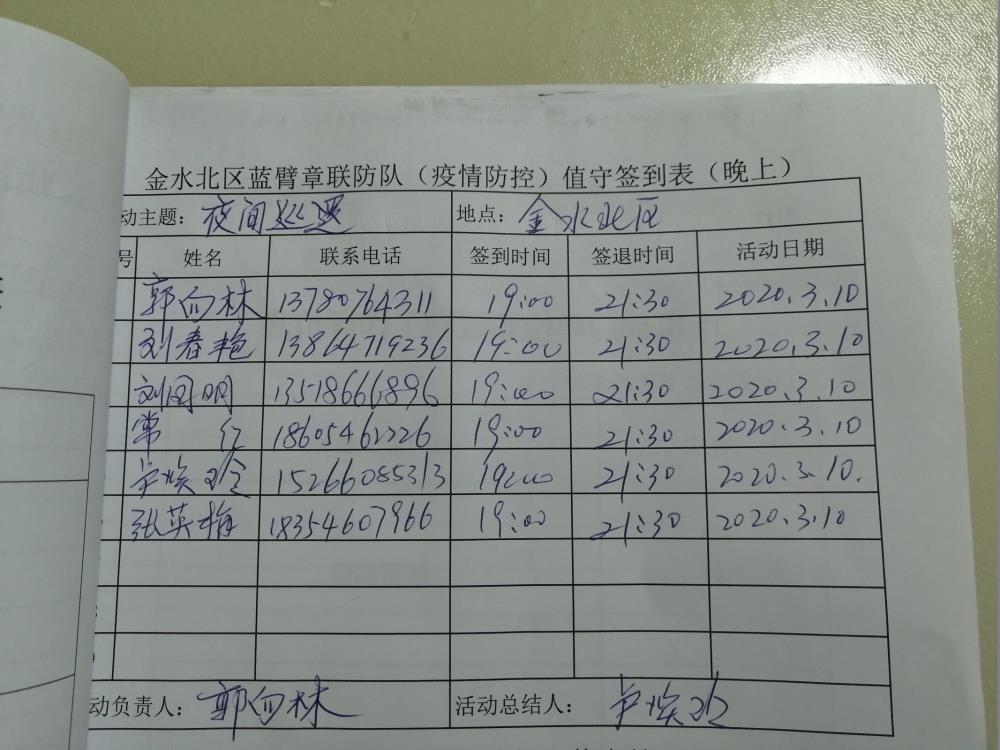 金水北区蓝臂章联防队（疫情防控）值守签到表（晚上）
动主题：夜间巡逻 地点：金水北区
号 姓名 联系电话 签到时间 签退时间 活动日期
郭向林 13780764311 19:00 21:30 2020.3.10
刘春艳 13864719236 19:00 21:30 2020.3.10
刘国明 13518666896 19:00 21:30 2020.3.10
常 红 18605462226 19:00 21:30 2020.3.10
卢焕玲 15266085313 19:00 21:30 2020.3.10.
张英梅 18354607966 19:00 21:30 2020.3.10
动负责人：郭向林 活动总结人：卢焕玲